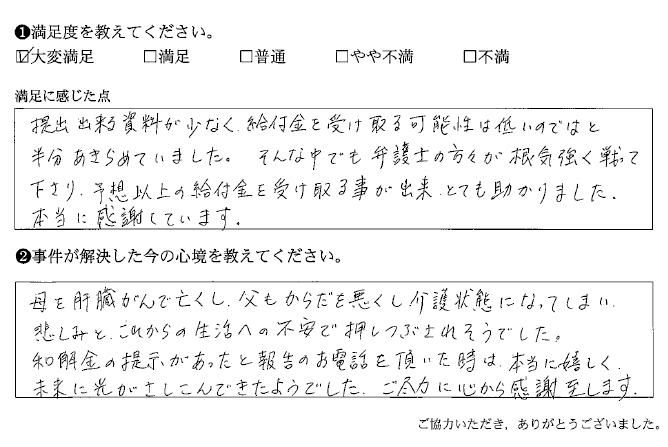 ❶満足度を教えてください。
☑大変満足 □満足 □普通 □やや不満 □不満
満足に感じた点
提出出来る資料が少なく、給付金を受け取る可能性は低いのではと
半分あきらめていました。そんな中でも弁護士の方々が根気強く戦って
下さり、予想以上の給付金を受け取る事が出来、とても助かりました。
本当に感謝しています。
❷事件が解決した今の心境を教えてください。
母を肝臓がんで亡くし、父もからだを悪くし介護状態になってしまい、
悲しみと、これからの生活への不安で押しつぶされそうでした。
和解金の提示があったと報告のお電話を頂いた時は、本当に嬉しく、
未来に光がさしこんできたようでした。ご尽力に心から感謝至します。
ご協力いただき、ありがとうございました。